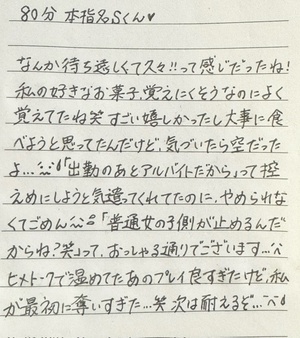 80分 本指名Sくん♥
なんか待ち遠しくて久々!!って感じだったね!
私の好きなお菓子、覚えにくそうなのによく
覚えてたね笑 すごい嬉しかったし大事に食
べようと思ってたんだけど、気づいたら空だった
よ…「出勤のあとアルバイトだから」って控
えめにしようと気遣ってくれてたのに、やめられな
くてごめん「普通女の子側が止めるんだ
からね?笑」って、おっしゃる通りでございます…
ヒメトークで温めてたあのプレイ良すぎたけど、私
が最初に奪いすぎた…笑 次は耐えるぞ…